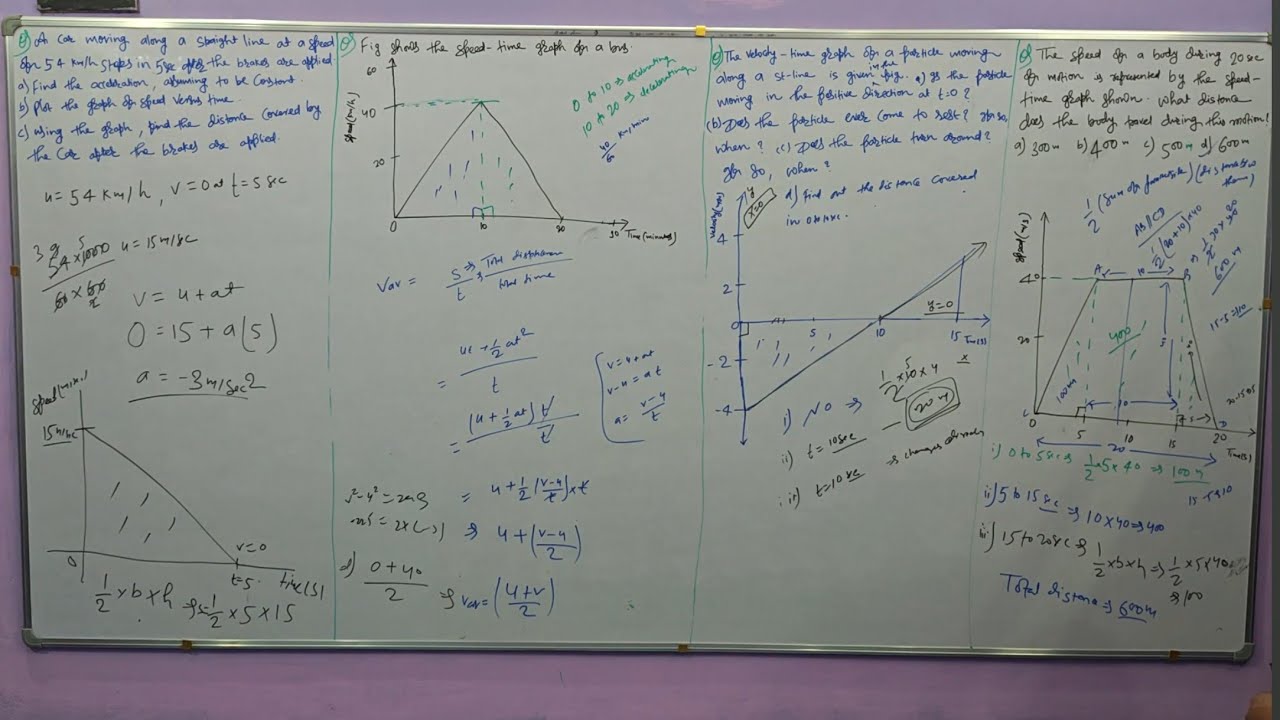 Q) A car moving along a straight line at a speed
of 54 km/h stops in 5 sec after the brakes are applied.
a) Find the acceleration, assuming to be constant.
b) plot the graph of speed versus time.
c) using the graph, find the distance covered by
the car after the brakes are applied.
u = 54 km/h, v = 0 at t = 5 sec
54 × 1000
60 × 60
u = 15 m/sec
v = u + at
0 = 15 + a(5)
a = -3 m/sec2
15 m/sec
0
v = 0
t = 5
1/2 × b × h ⇒ s = 1/2 × 5 × 15
Q) Fig shows the speed-time graph for a bus.
60
40
20
0
10
20
30
Speed (km/h)
Time (minutes)
0 to 10 ⇒ accelerating
10 to 20 ⇒ decelerating
40/60 km/min
Vav = S/t ⇒ Total distance / total time
= ut + 1/2 at² / t
= (u + 1/2 at) t / t
v = u + at
v - u = at
a = v-u / t
= u + 1/2 (v-u / t) × t
⇒ u + (v-u / 2)
d) 0 + 40 / 2 ⇒ Vav = (u+v / 2)
Q) The velocity-time graph of a particle moving
along a st-line is given in the fig. a) Is the particle
moving in the positive direction at t=0?
(b) Does the particle ever come to rest? If so,
when? (c) Does the particle turn around?
If so, when?
d) Find out the distance covered
in 0 to 10 sec.
y
x=0
Velocity (m/s)
4
2
0
-2
-4
5
10
15
Time(s)
y=0
x
1/2 × 10 × 4
20 m
i) NO ⇒
ii) t = 10 sec
iii) t = 10 sec ⇒ changes
Q) The speed of a body during 20 sec
of motion is represented by the speed-
time graph shown. What distance
does the body travel during this motion?
a) 300m b) 400m c) 500m d) 600m
1/2 (sum of parallel sides) (distance b/w them)
AB||CD
1/2 (20+10) × 40
600 m
Speed (m/s)
40
20
0
A
10
B
400
100m
10
C
D
5
10
15
20
Time(s)
20
15-5=10
i) 0 to 5 sec ⇒ 1/2 × 5 × 40 ⇒ 100 m
ii) 5 to 15 sec ⇒ 10 × 40 ⇒ 400
iii) 15 to 20 sec ⇒ 1/2 × b × h ⇒ 1/2 × 5 × 40
⇒ 100
Total distance ⇒ 600 m